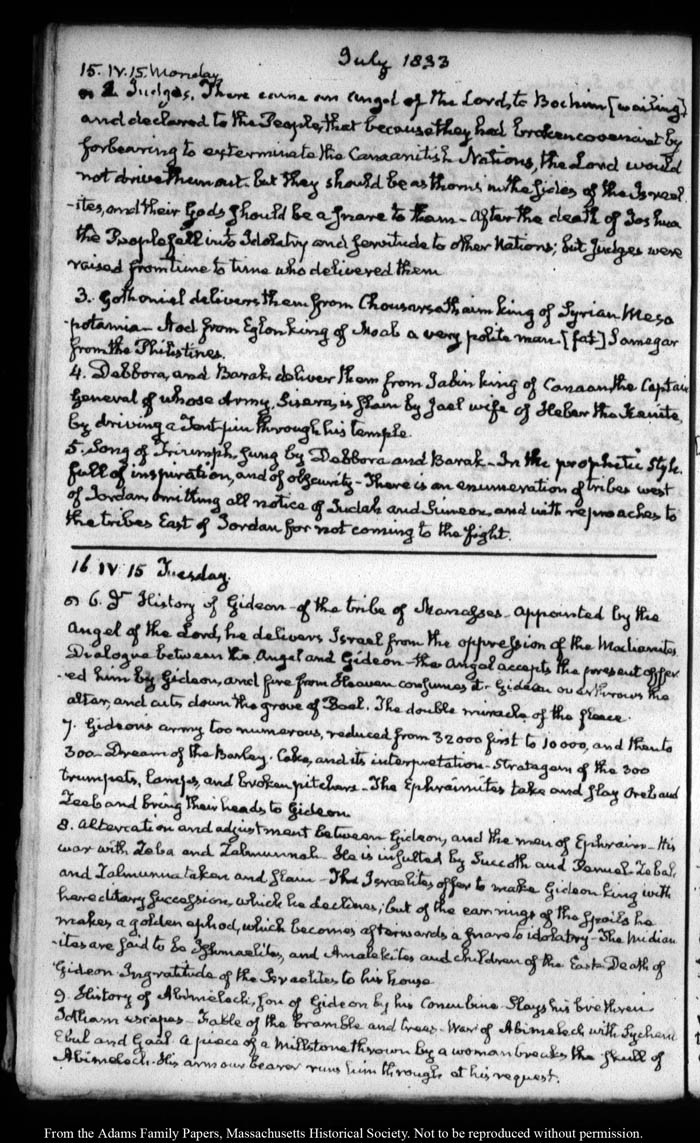 July 1833
15. IV. 15. Monday
2 Judges. There came an Angel of the Lord, to Bochim [wailing]
and declared to the People, that because they had broken covenant by
forbearing to exterminate the Canaanitish Nations, the Lord would
not drive them out. but they should be as thorns in the sides of the Israel
-ites, and their Gods should be a snare to them - After the death of Joshua
the People fell into Idolatry and servitude to other Nations; but Judges were
raised from time to time who delivered them
3. Gothoniel delivers them from Chousarsathaim king of Syrian Meso
-potamia - Aod from Eglon king of Moab a very polite man. [fat] Samegar
from the Philistines.
4. Debbora, and Barak deliver them from Jabin king of Canaan the Captain
General of whose Army, Sisera, is slain by Jael wife of Heber the Kenite,
by driving a Tent-pin through his temple.
5. Song of Triumph, sung by Debbora and Barak - In the prophetic style.
full of inspiration, and of obscurity - There is an enumeration of tribes west
of Jordan, omitting all notice of Judah and Simeon, and with reproaches to
the tribes East of Jordan for not coming to the fight.
16 IV. 15 Tuesday.
6. History of Gideon - of the tribe of Manasses - appointed by the
Angel of the Lord, he delivers Israel from the oppression of the Madianites
Dialogue between the Angel and Gideon - the Angel accepts the present offer
-ed him by Gideon, and fire from Heaven consumes it - Gideon overthrows the
altar, and cuts down the grove of Baal. The double miracle of the fleece.
7. Gideon's army too numerous, reduced from 32000 first to 10000, and then to
300 - Dream of the Barley. Cake, and its interpretation - Stratagem of the 300
trumpets, lamps, and broken pitchers - The Ephraimites take and slay Oreb and
Zeeb and bring their heads to Gideon
8. Altercation and adjustment between Gideon, and the men of Ephraim - His
war with Zeba and Zalmunnah - He is insulted by Succoth and Penuel - Zebah,
and Zalmunna taken and slain - The Israelites offer to make Gideon king with
hereditary succession, which he declines; but of the earrings of the spoils he
makes a golden ephod, which becomes afterwards a snare to idolatry - The Midian
-ites are said to be Ishmaelites, and Amalekites and children of the East - Death of
Gideon - Ingratitude of the Israelites to his house
9. History of Abimelech, son of Gideon by his Concubine - Slays his brethren
Jotham escapes - Fable of the bramble and trees - War of Abimelech with Sychem
Ebul and Gaal a piece of a Millstone thrown by a woman breaks the skull of
Abimelech. His armour bearer runs him through at his request.
From the Adams Family Papers, Massachusetts Historical Society. Not to be reproduced without permission.